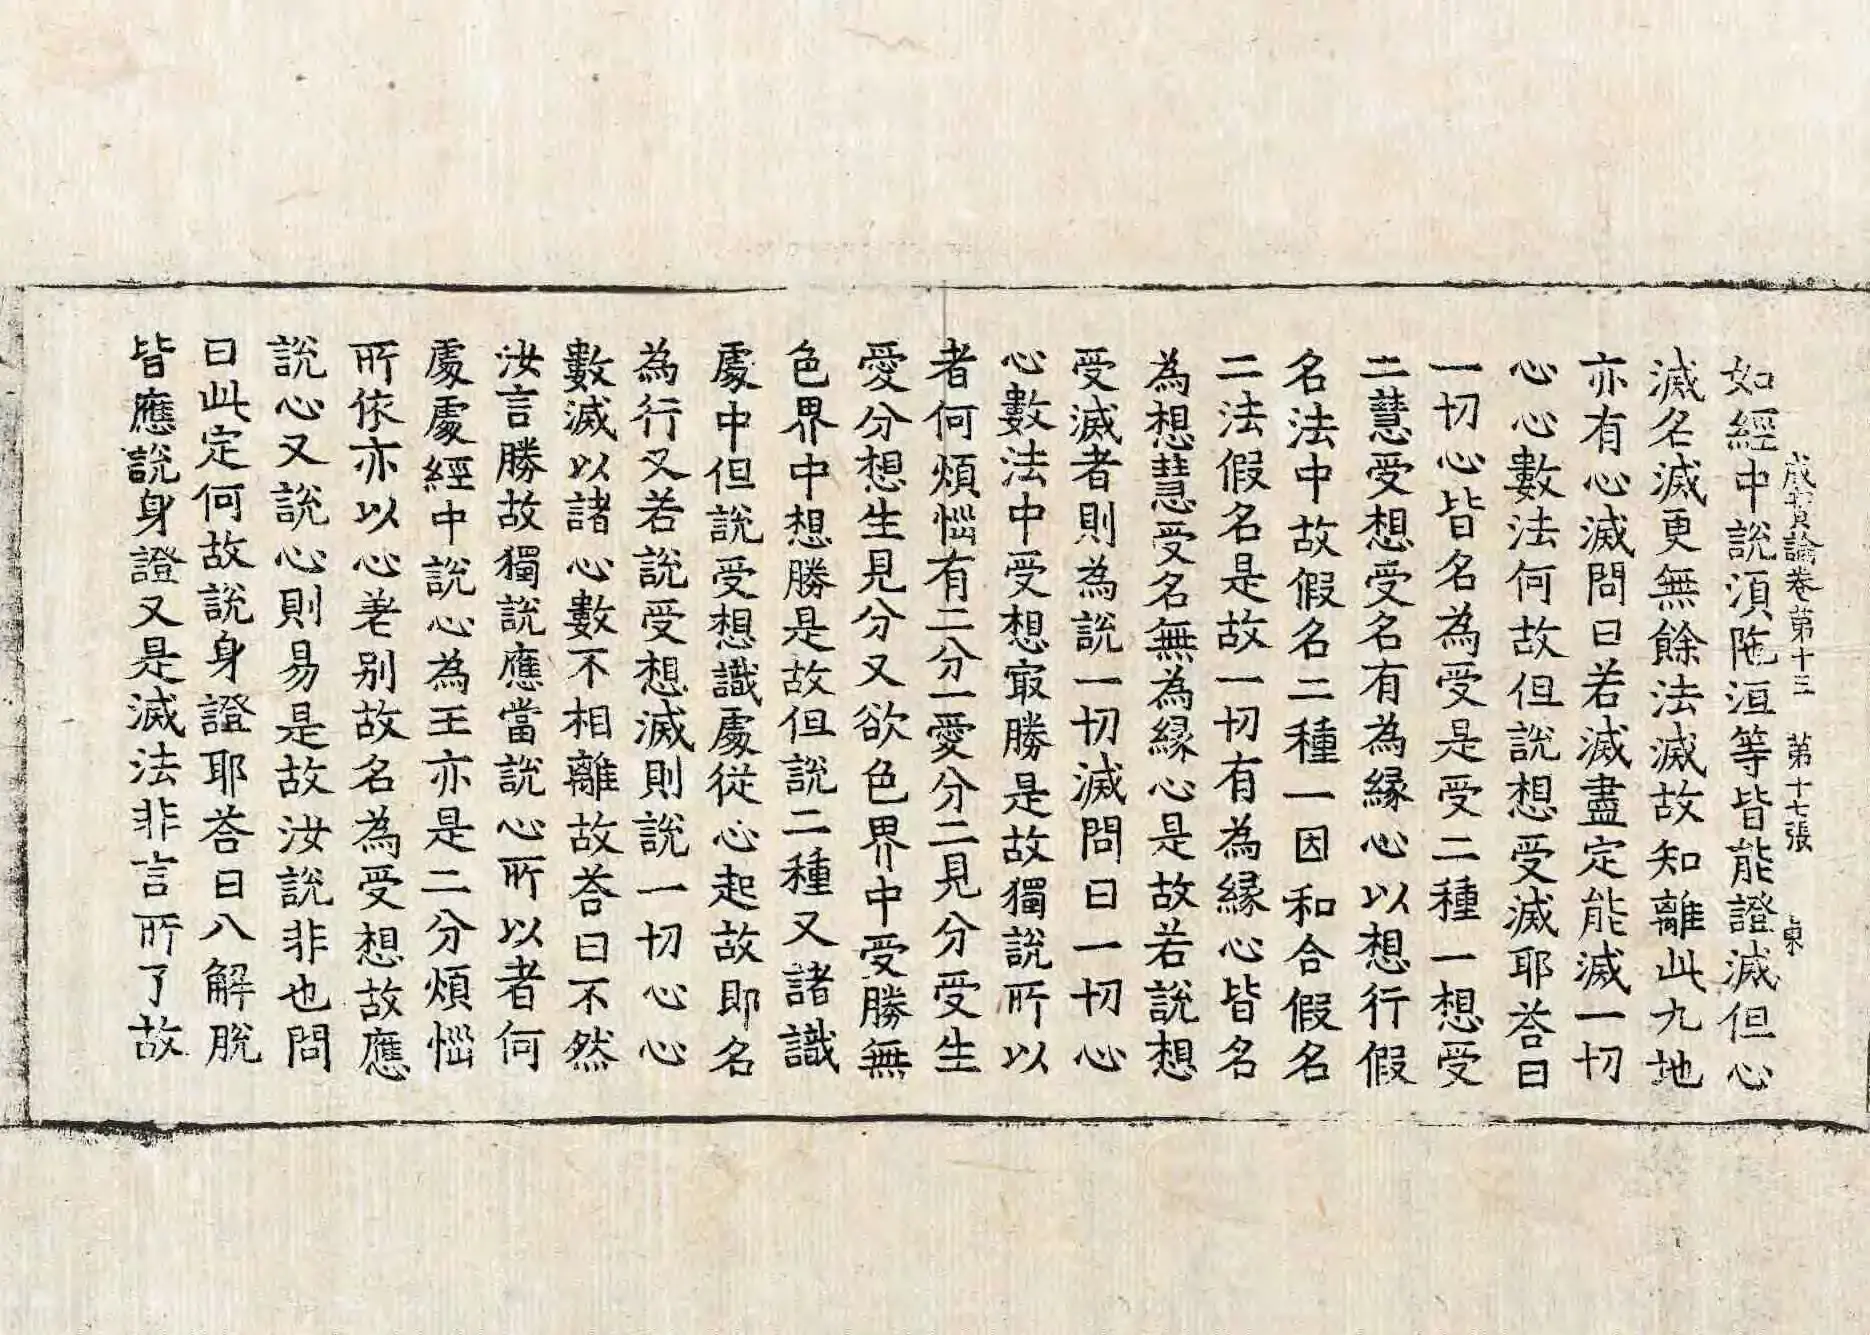 成實論卷第十三 第十七張 東
如經中說湏陁洹等皆能證滅但心
滅名滅更無餘法滅故知離此九地
亦有心滅問曰若滅盡定能滅一切
心心數法何故但說想受滅耶荅曰
一切心皆名為受是受二種一想受
二慧受想受名有為緣心以想行假
名法中故假名二種一因和合假名
二法假名是故一切有為緣心皆名
為想慧受名無為緣心是故若說想
受滅者則為說一切滅問曰一切心
心數法中受想㝡勝是故獨說所以
者何煩惱有二分一愛分二見分受生
愛分想生見分又欲色界中受勝無
色界中想勝是故但說二種又諸識
處中但說受想識處從心起故即名
為行又若說受想滅則說一切心心
數滅以諸心數不相離故荅曰不然
汝言勝故獨說應當說心所以者何
處處經中說心為王亦是二分煩惱
所依亦以心差別故名為受想故應
說心又說心則易是故汝說非也問
曰此定何故說身證耶荅曰八解脫
皆應說身證又是滅法非言所了故